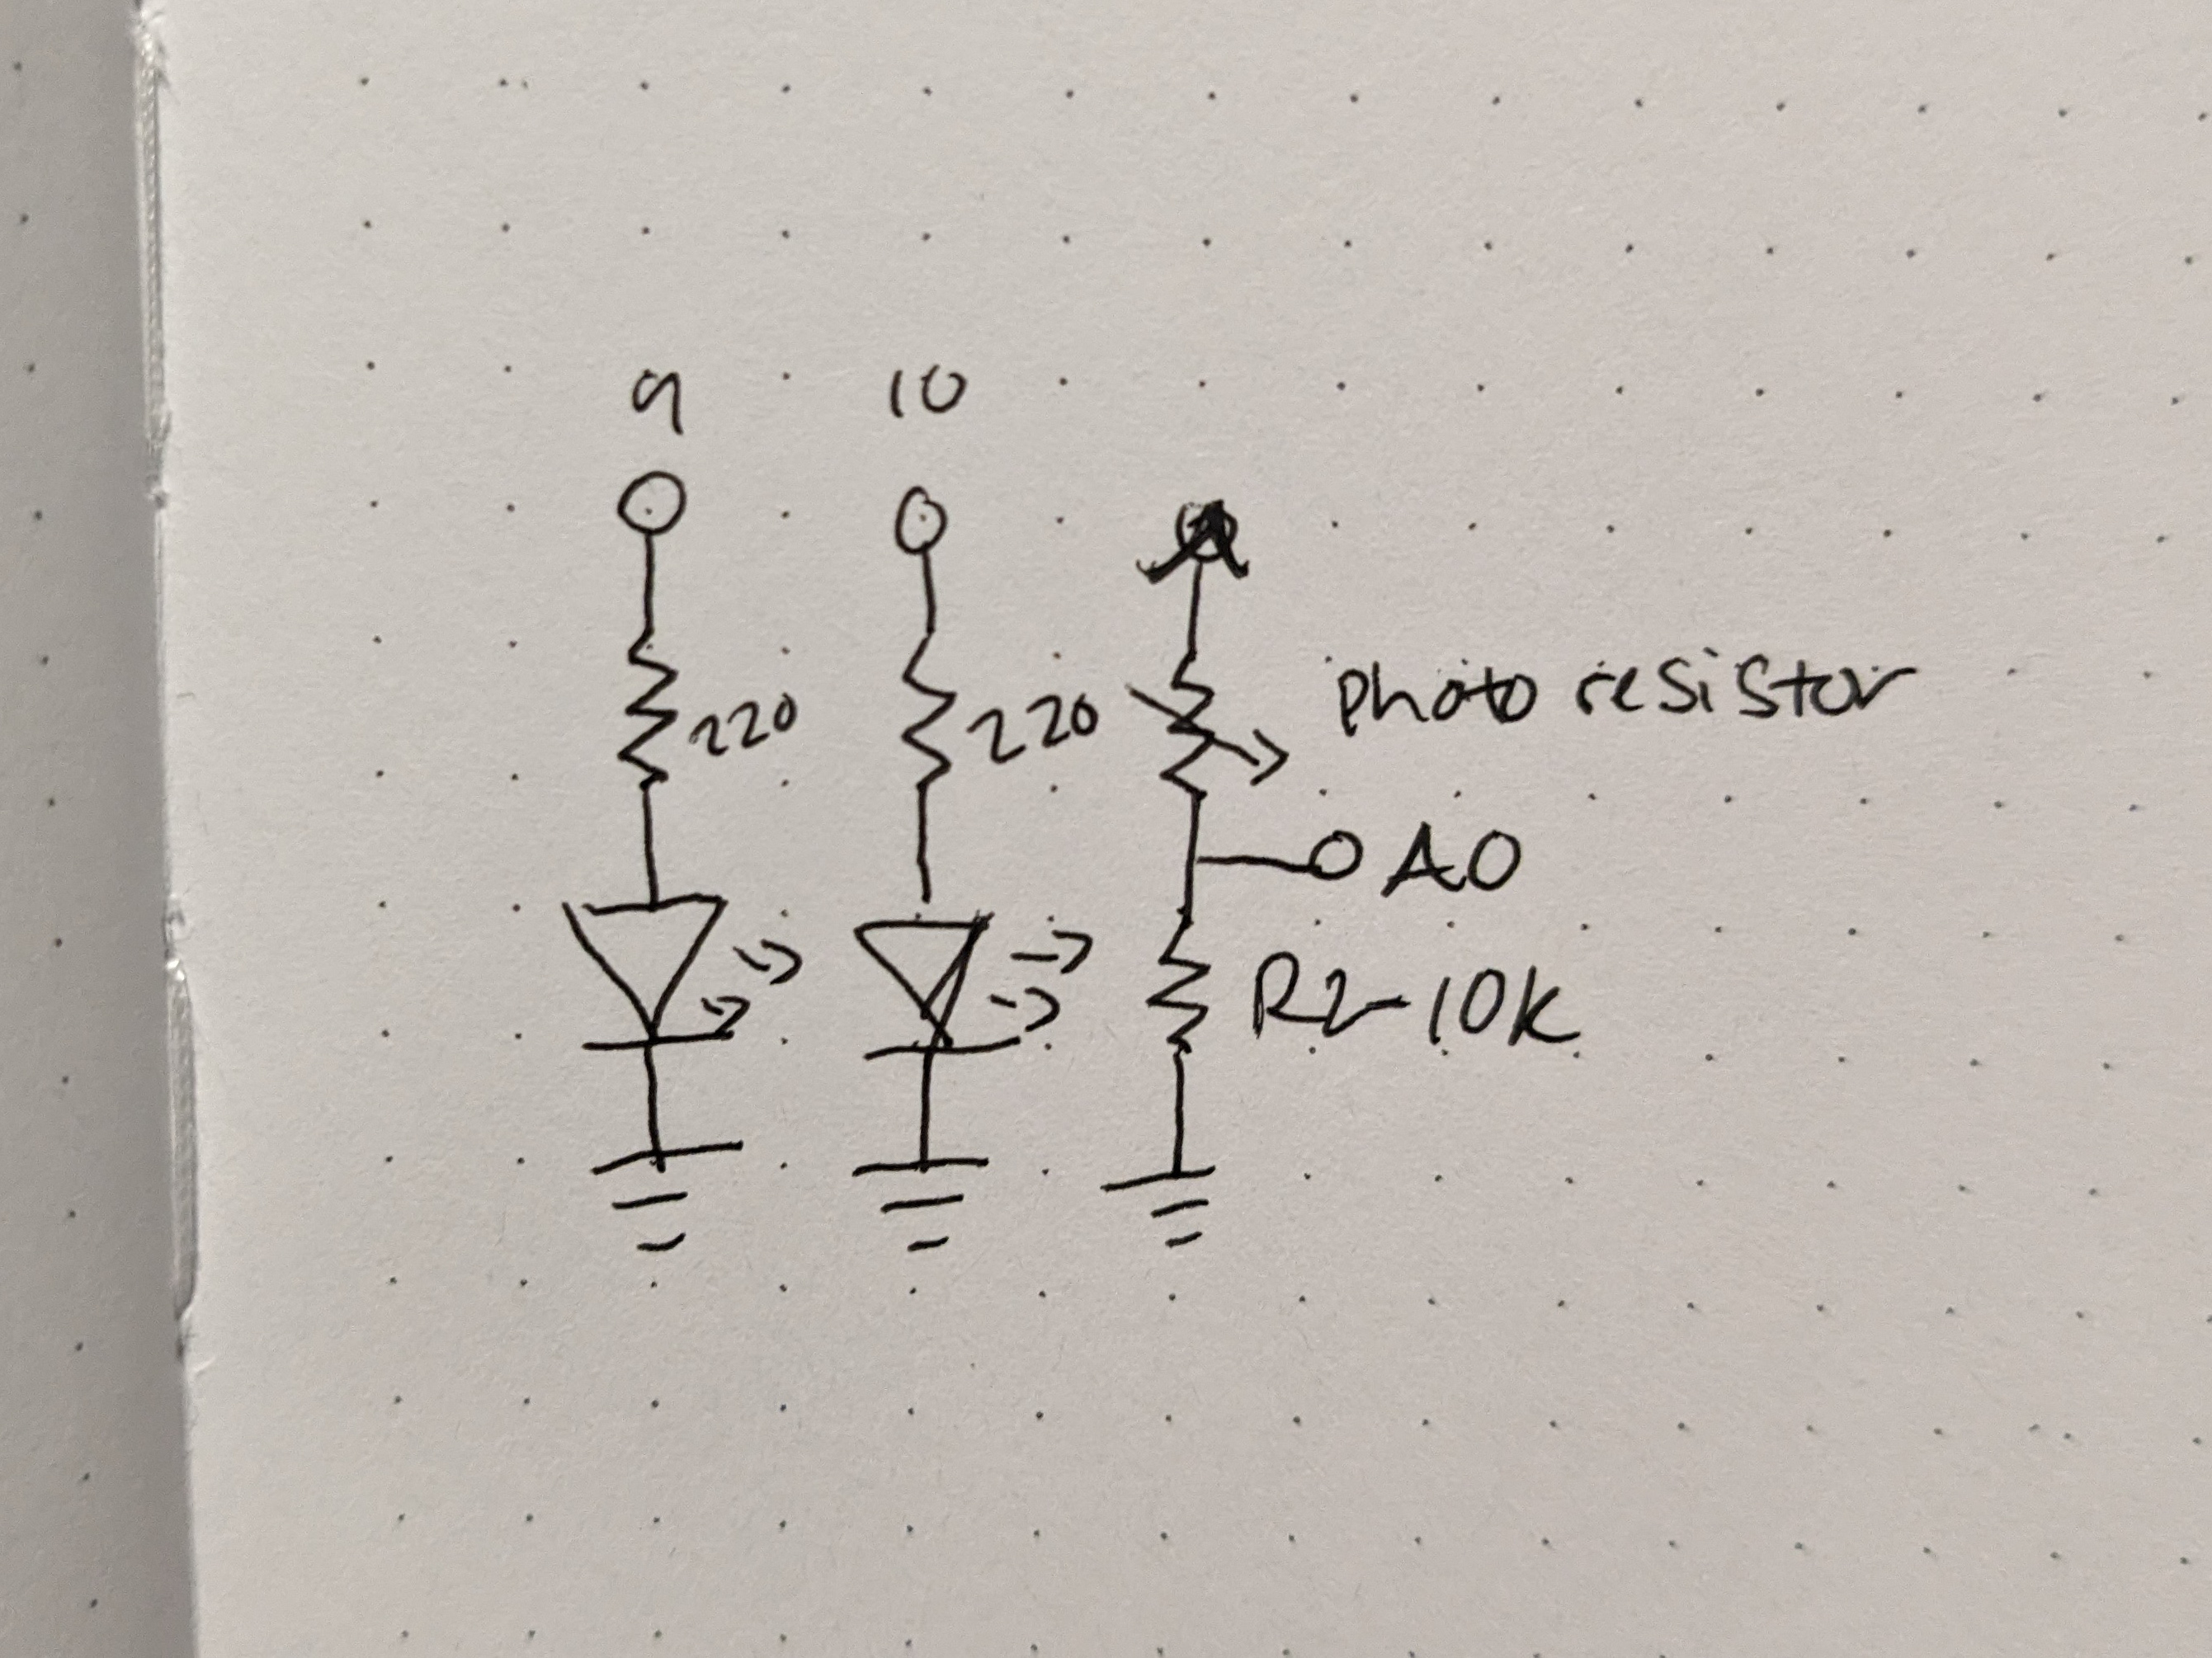 9 10
220 220 photo resistor
A0
R2-10k